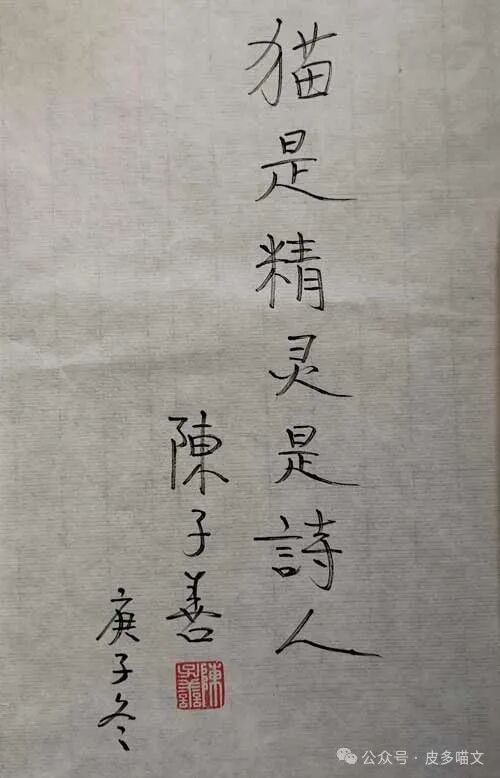 猫是精灵是詩人
陳子善
庚子冬
陳子善
公众号·皮多喵文